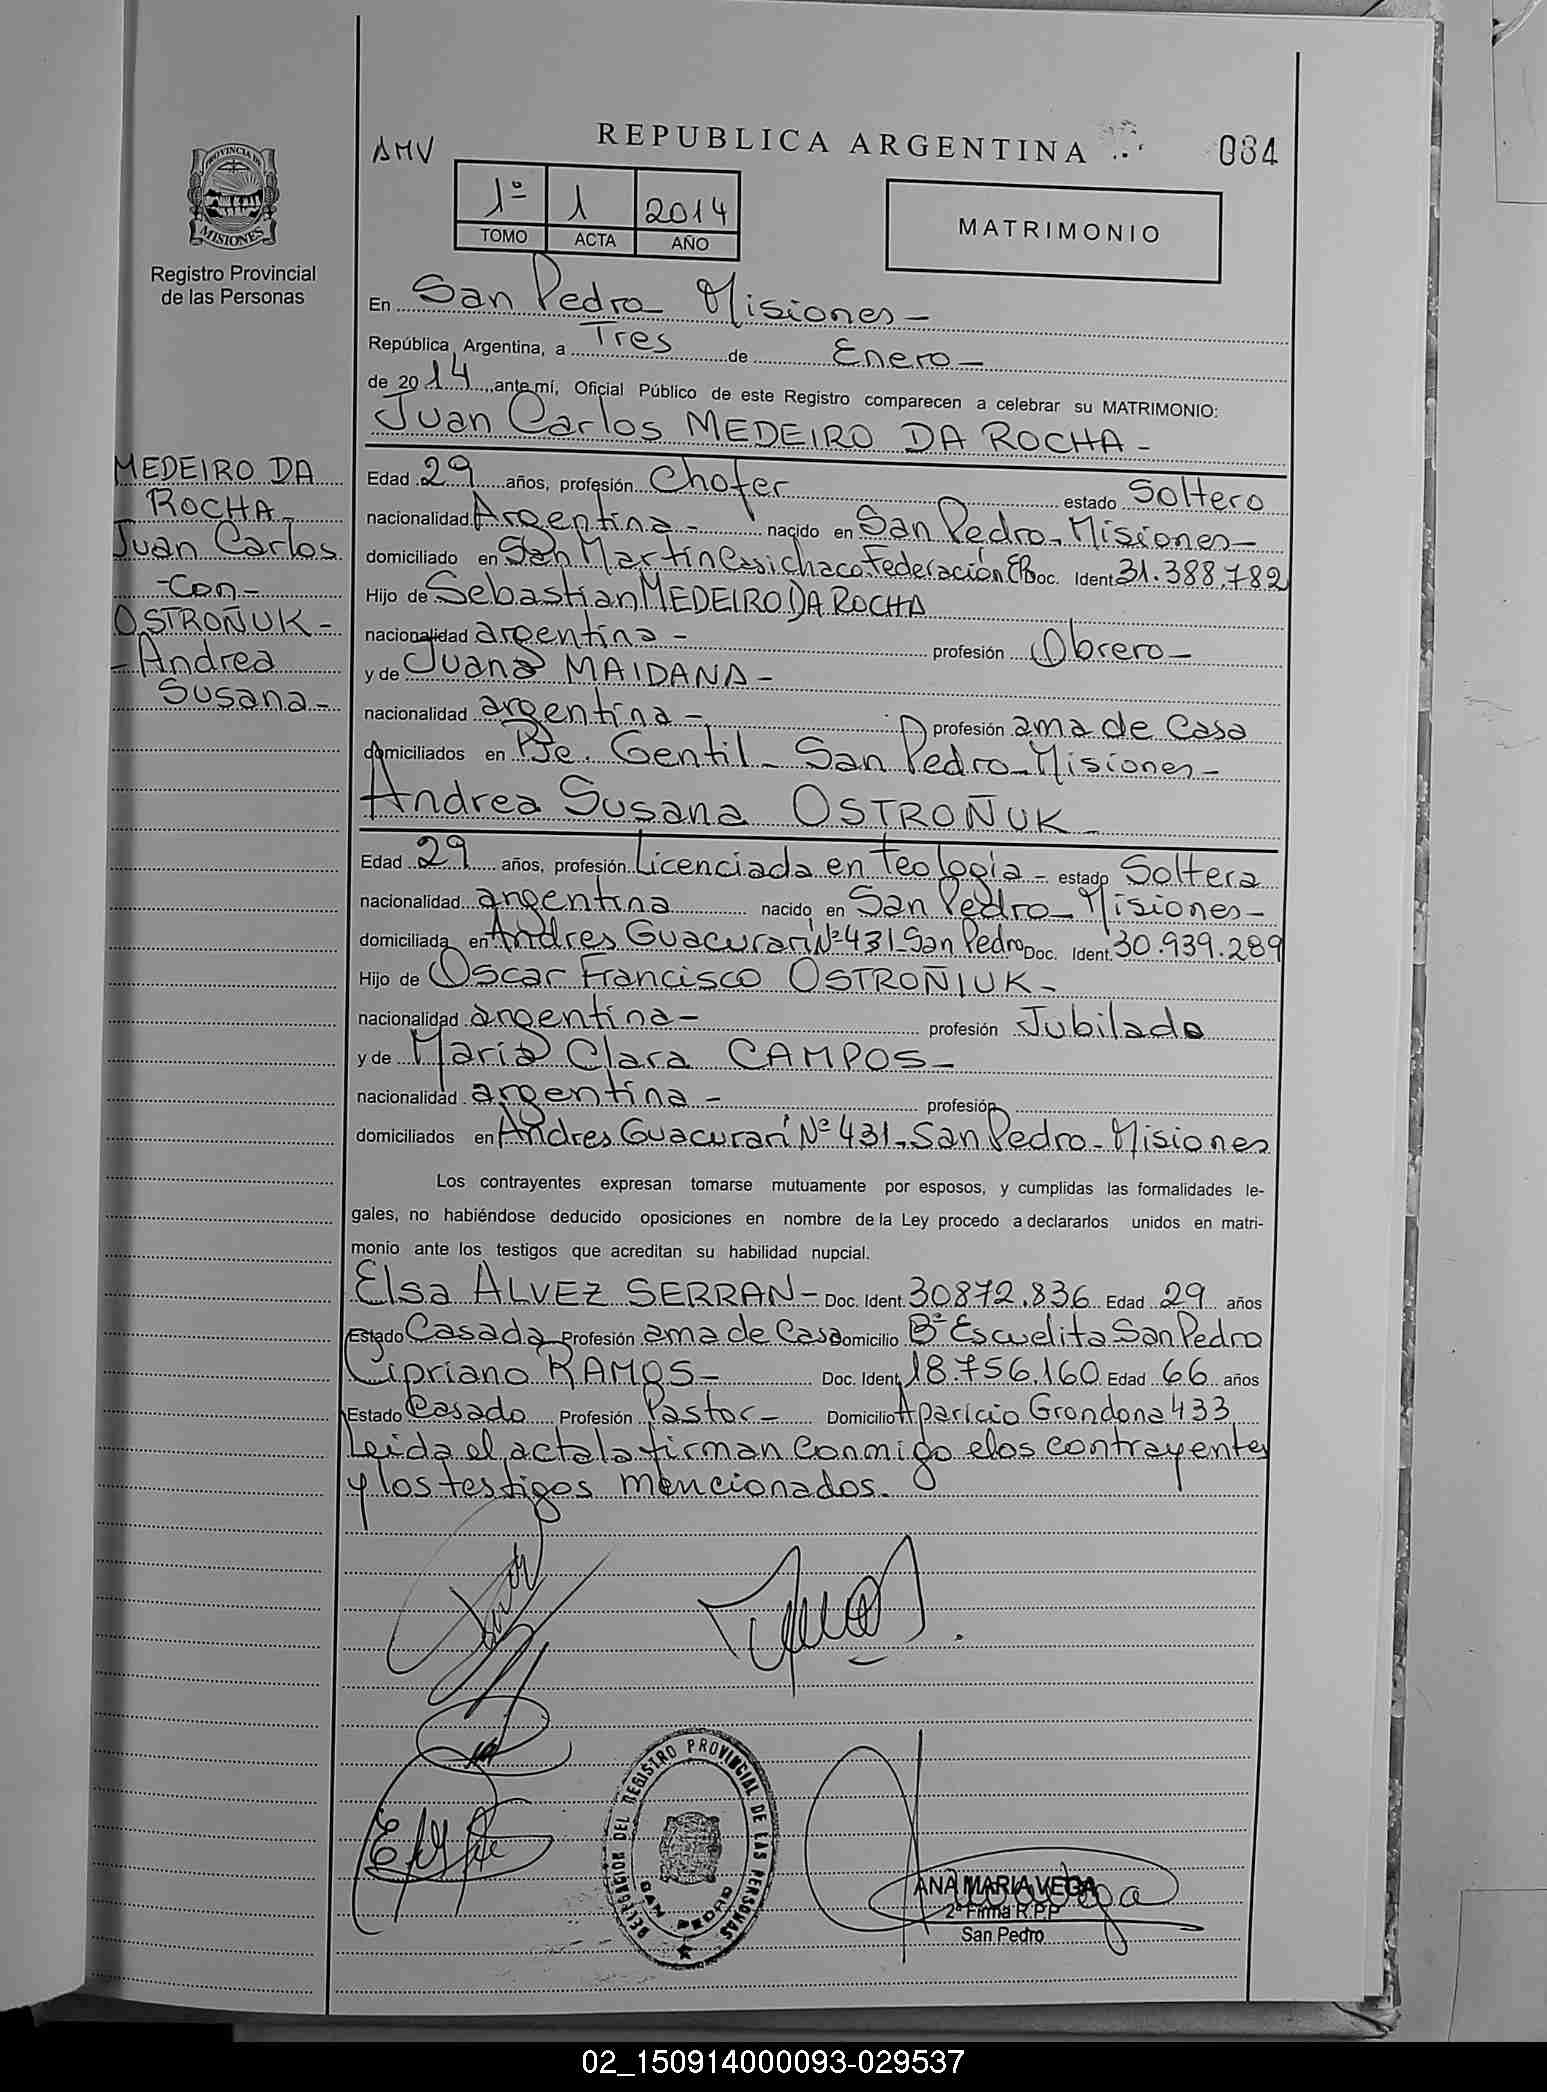 REPUBLICA ARGENTINA
084
AMV
1º 1 2014
TOMO ACTA AÑO
MATRIMONIO
PROVINCIA DE MISIONES
Registro Provincial
de las Personas
En San Pedro Misiones-
República Argentina, a Tres de Enero-
de 2014, ante mí, Oficial Público de este Registro comparecen a celebrar su MATRIMONIO:
Juan Carlos MEDEIRO DA ROCHA-
MEDEIRO DA
ROCHA-
Juan Carlos
-Con-
OSTROÑUK-
-Andrea
Susana-
Edad 29 años, profesión Chofer estado Soltero
nacionalidad Argentina- nacido en San Pedro-Misiones-
domiciliado en San Martín Federación Doc. Ident. 31.388.782
Hijo de Sebastian MEDEIRO DA ROCHA
nacionalidad argentina- profesión Obrero-
y de Juana MAIDANA-
nacionalidad argentina- profesión ama de Casa
domiciliados en Pje. Gentil-San Pedro-Misiones-
Andrea Susana OSTROÑUK-
Edad 29 años, profesión Licenciada en Teología- estado Soltera
nacionalidad argentina nacido en San Pedro-Misiones-
domiciliada en Andres Guacurarí Nº431-San Pedro Doc. Ident. 30.939.289
Hijo de Oscar Francisco OSTROÑIUK-
nacionalidad argentina- profesión Jubilado
y de Maria Clara CAMPOS-
nacionalidad argentina- profesión
domiciliados en Andres Guacurarí Nº 431-San Pedro-Misiones
Los contrayentes expresan tomarse mutuamente por esposos, y cumplidas las formalidades le-
gales, no habiéndose deducido oposiciones en nombre de la Ley procedo a declararlos unidos en matri-
monio ante los testigos que acreditan su habilidad nupcial.
Elsa ALVEZ SERRAN- Doc. Ident. 30872.836 Edad 29 años
Estado Casada Profesión ama de Casa Domicilio Bº Escuelita San Pedro
Cipriano RAMOS- Doc. Ident. 18.756.160 Edad 66 años
Estado Casado Profesión Pastor- Domicilio Aparicio Grondona 433
Leida el acta la firman conmigo elos contrayentes
y los testigos mencionados.
DELEGACION DEL REGISTRO PROVINCIAL DE LAS PERSONAS
SAN PEDRO
ANA MARIA VEGA
2ª Firma R.P.P
San Pedro
02_150914000093-029537